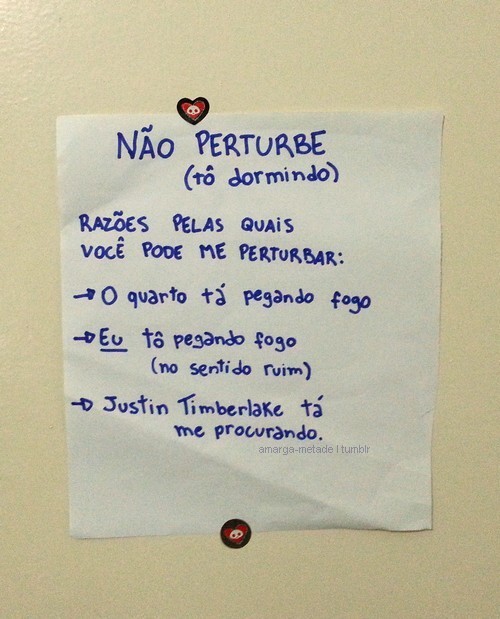 NÃO PERTURBE
(tô dormindo)
RAZÕES PELAS QUAIS
VOCÊ PODE ME PERTURBAR:
→ O quarto tá pegando fogo
→ Eu tô pegando fogo
(no sentido ruim)
→ Justin Timberlake tá
me procurando.
amarga-metade | tumblr